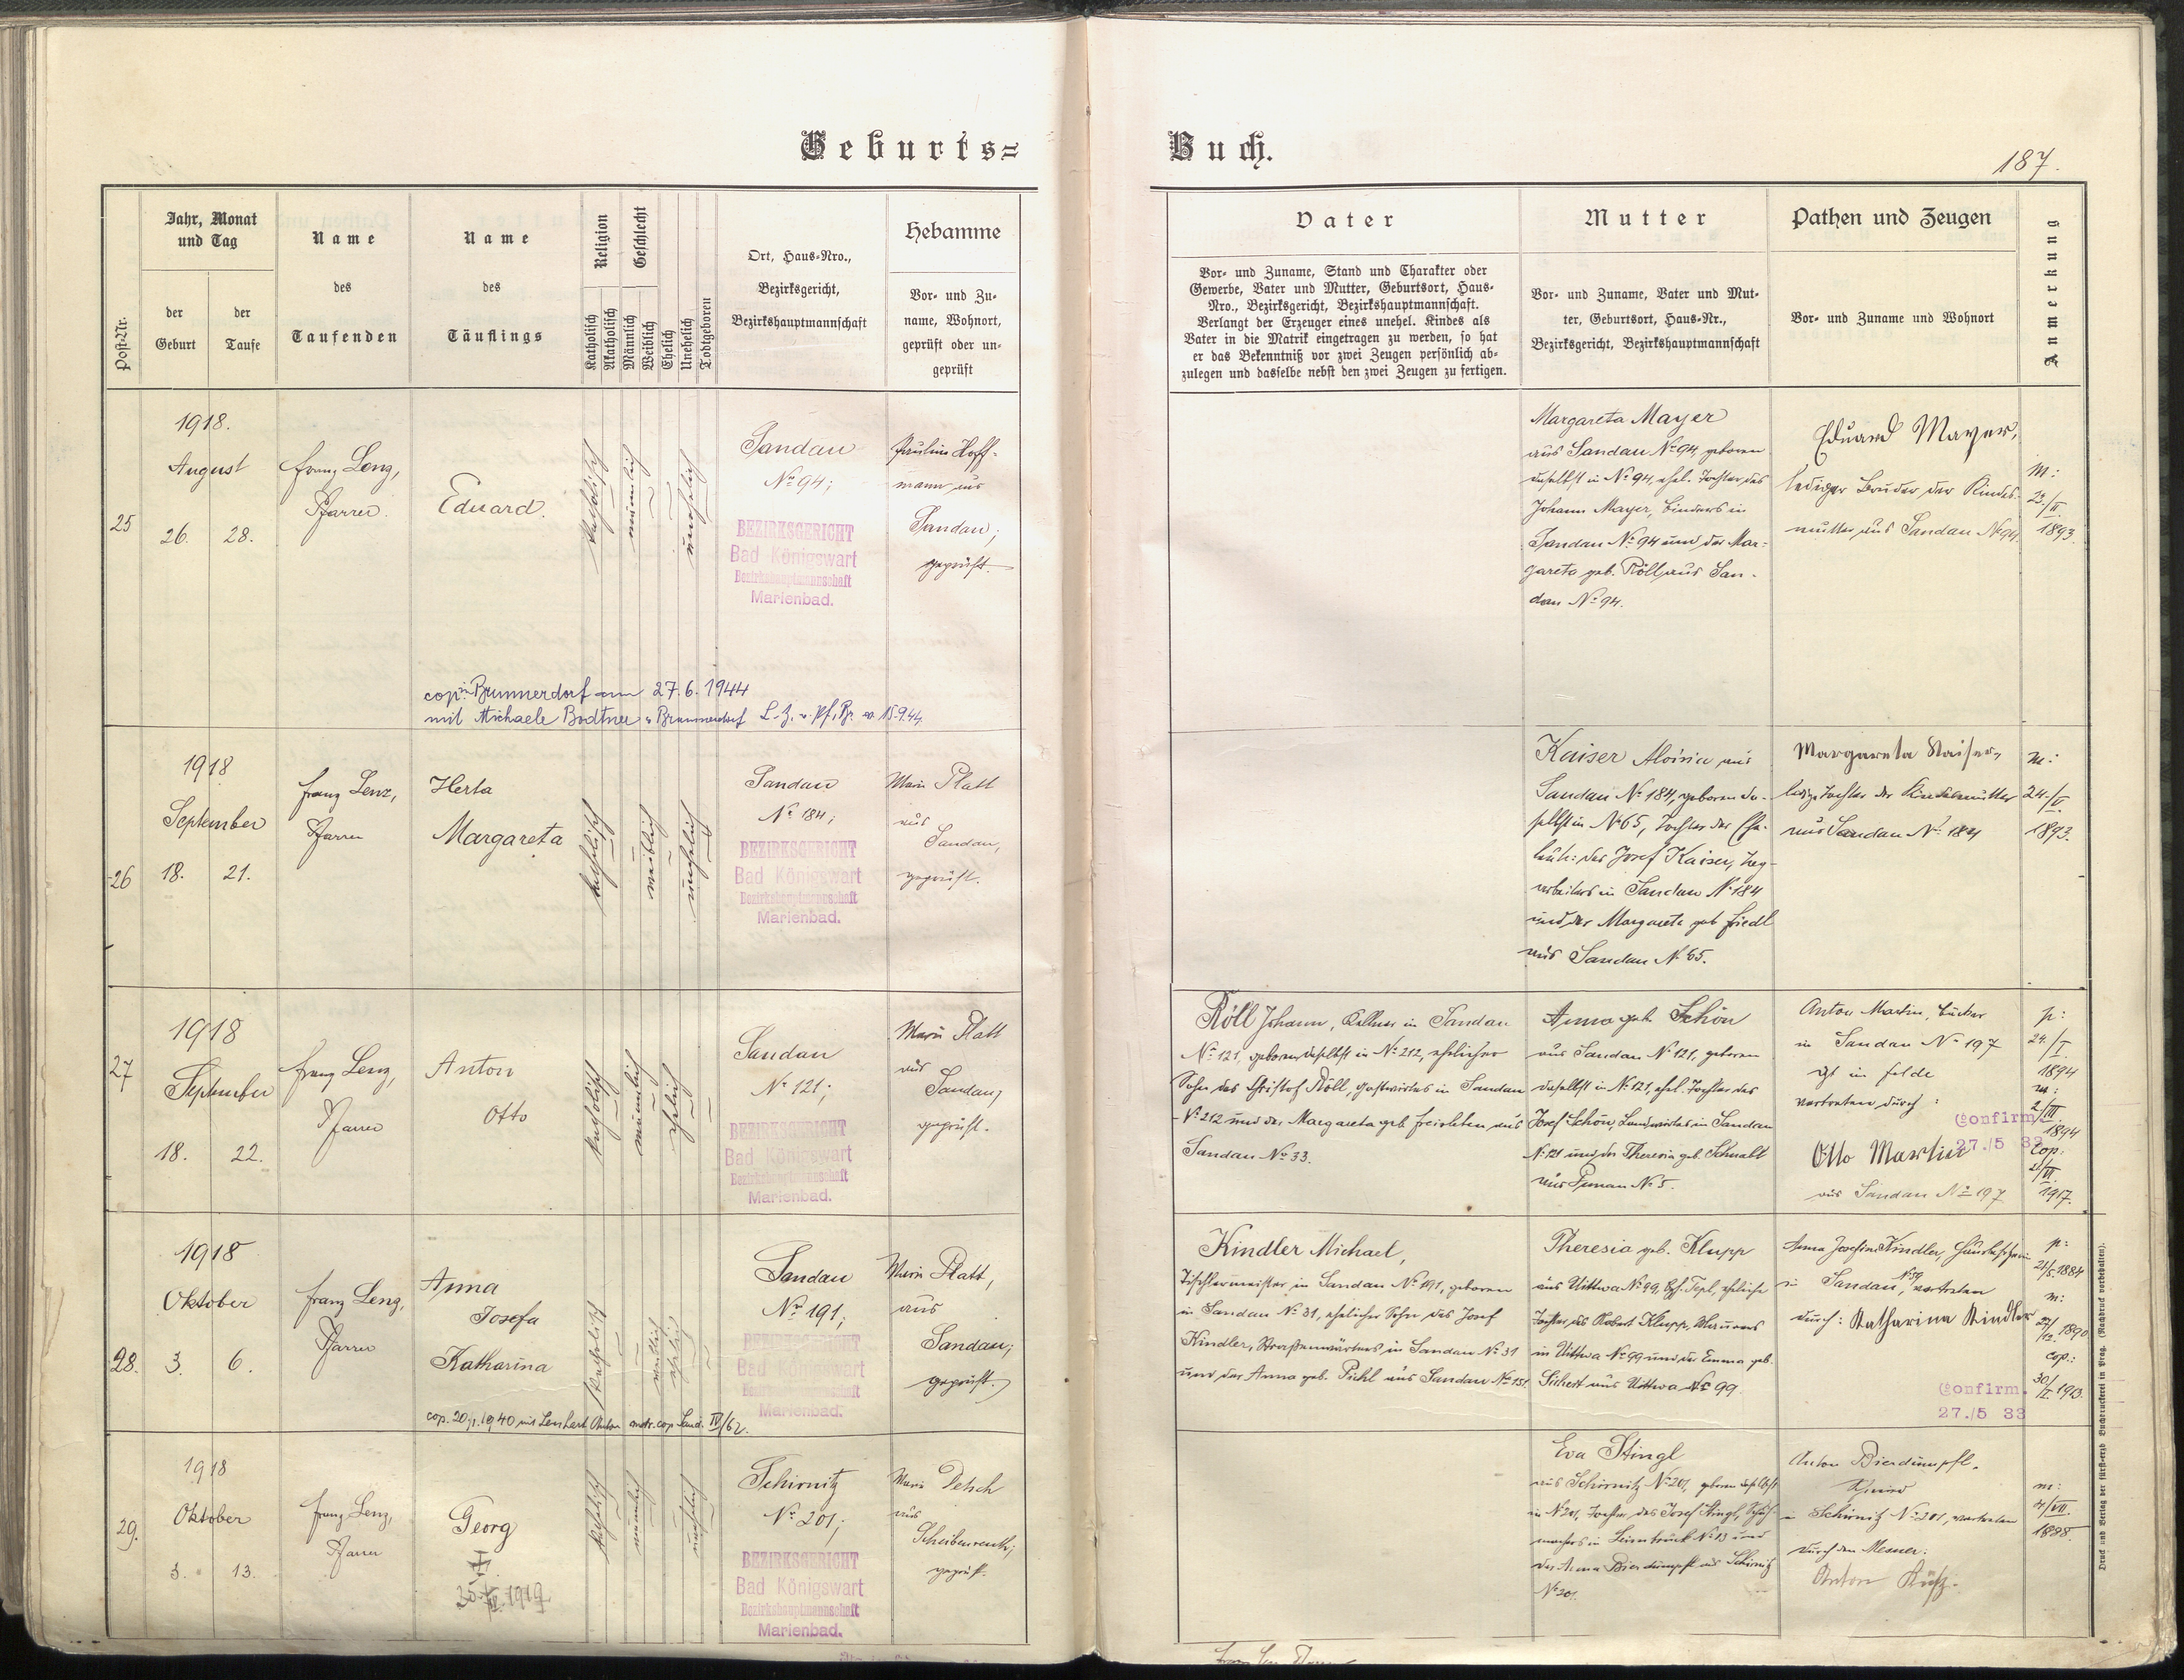 Geburts=
Buch.
187.
Post-Nr.
Jahr, Monat
und Tag
der
Geburt
der
Taufe
Name
des
Taufenden
Name
des
Täuflings
Religion
Katholisch
Akatholisch
Geschlecht
Männlich
Weiblich
Ehelich
Unehelich
Todtgeboren
Ort, Haus-Nro.,
Bezirksgericht,
Bezirkshauptmannschaft
Hebamme
Vor- und Zu-
name, Wohnort,
geprüft oder un-
geprüft
Vater
Vor- und Zuname, Stand und Charakter oder
Gewerbe, Vater und Mutter, Geburtsort, Haus-
Nro., Bezirksgericht, Bezirkshauptmannschaft.
Verlangt der Erzeuger eines unehel. Kindes als
Vater in die Matrik eingetragen zu werden, so hat
er das Bekenntniß vor zwei Zeugen persönlich ab-
zulegen und dasselbe nebst den zwei Zeugen zu fertigen.
Mutter
Vor- und Zuname, Vater und Mut-
ter, Geburtsort, Haus-Nr.,
Bezirksgericht, Bezirkshauptmannschaft
Pathen und Zeugen
Vor- und Zuname und Wohnort
Anmerkung
25
1918.
August
26. 28.
Franz Lenz,
Pfarrer.
Eduard.
katholisch
männlich
unehelich
Sandau
No 94;
BEZIRKSGERICHT
Bad Königswart
Bezirkshauptmannschaft
Marienbad.
Paulina Hoff-
mann aus
Sandau;
geprüft.
Margareta Mayer
aus Sandau No 94, geboren
daselbst in No 94, ehel. Tochter des
Johann Mayer, Binders in
Sandau No 94 und der Mar-
gareta geb. Röll aus San-
dau No 94.
Eduard Mayer,
lediger Bruder der Kindes-
mutter aus Sandau No 94.
m:
23./II.
1893.
cop. in Brunnerdorf am 27.6.1944
mit Michaele Bodtner Brunnersdorf 15.9.44.
26
1918
September
18. 21.
Franz Lenz,
Pfarrer
Herta
Margareta
katholisch
weiblich
unehelich
Sandau
No 184;
BEZIRKSGERICHT
Bad Königswart
Bezirkshauptmannschaft
Marienbad.
Marie Platt
aus
Sandau,
geprüft.
Kaiser Aloisia aus
Sandau No 184, geboren da-
selbst in No 65, Tochter der Ehe-
leute: des Josef Kaiser, Tag-
arbeiters in Sandau No 184
und der Margareta geb Friedl
aus Sandau No 65.
Margareta Kaiser,
ledige Tochter der Kindesmutter
aus Sandau No 184
m:
24./V.
1893.
27
1918
September
18. 22.
Franz Lenz,
Pfarrer
Anton
Otto
katholisch
männlich
ehelich
Sandau
No 121;
BEZIRKSGERICHT
Bad Königswart
Bezirkshauptmannschaft
Marienbad.
Marie Platt
aus
Sandau,
geprüft.
Röll Johann, Kellner in Sandau
No 121, geboren daselbst in No 212, ehelicher
Sohn des Christof Röll, Gastwirtes in Sandau
No 212 und der Margareta geb aus
Sandau No 33.
Anna geb. Schön
aus Sandau No 121, geboren
daselbst in No 121, ehel. Tochter des
Josef Schön, Landwirtes in Sandau
No 121 und der Theresia geb. Schnabl
aus No 5.
Anton Martin, Bäcker
in Sandau No 197
in Felde
vertreten durch:
Otto Martin
aus Sandau No 197
Confirm.
27./5 33
p:
24./I.
1894
m:
2/III
1894
Cop.
1917.
28.
1918
Oktober
3. 6.
Franz Lenz,
Pfarrer
Anna
Josefa
Katharina
katholisch
weiblich
ehelich
Sandau
No 191;
BEZIRKSGERICHT
Bad Königswart
Bezirkshauptmannschaft
Marienbad.
Marie Platt,
aus
Sandau;
geprüft.
Kindler Michael,
Tischlermeister in Sandau No 191, geboren
in Sandau No 31, ehelicher Sohn des Josef
Kindler, Straßenwärters in Sandau No 31
und der Anna geb. Pichl aus Sandau No 151.
Theresia geb. Klupp
aus Uittwa No 99, Bzh. Tepl, eheliche
Tochter des Robert Klupp, Maurers
in Uittwa No 99 und der Emma geb.
Sichert aus Uittwa No 99.
Anna Josefine Kindler,
in Sandau, vertreten
durch: Katharina Kindler
Confirm.
27./5 33
p:
21/5.1884
m:
1890
cop.:
30/I.1913.
cop. 20. 1940 mit Lenhart Anton matr. cop. Sand. IV/62.
29.
1918
Oktober
3. 13.
Franz Lenz,
Pfarrer
Georg
1919
katholisch
männlich
unehelich
Schirnitz
No 201;
BEZIRKSGERICHT
Bad Königswart
Bezirkshauptmannschaft
Marienbad.
Marie Petsch
aus
Scheibenreuth;
geprüft.
Eva Stingl
aus Schirnitz No 201, geboren daselbst
in No 201, Tochter des Josef Stingl, Schuh-
machers in No 13 und
der Anna Bierdümpfl aus Schirnitz
No 201.
Anton Bierdümpfl,
in Schirnitz No 201, vertreten
durch den Mesner:
Anton
m:
4/VII.
1898.
Druck und Verlag der fürst-erzb. Buchdruckerei in Prag. (Nachdruck vorbehalten).